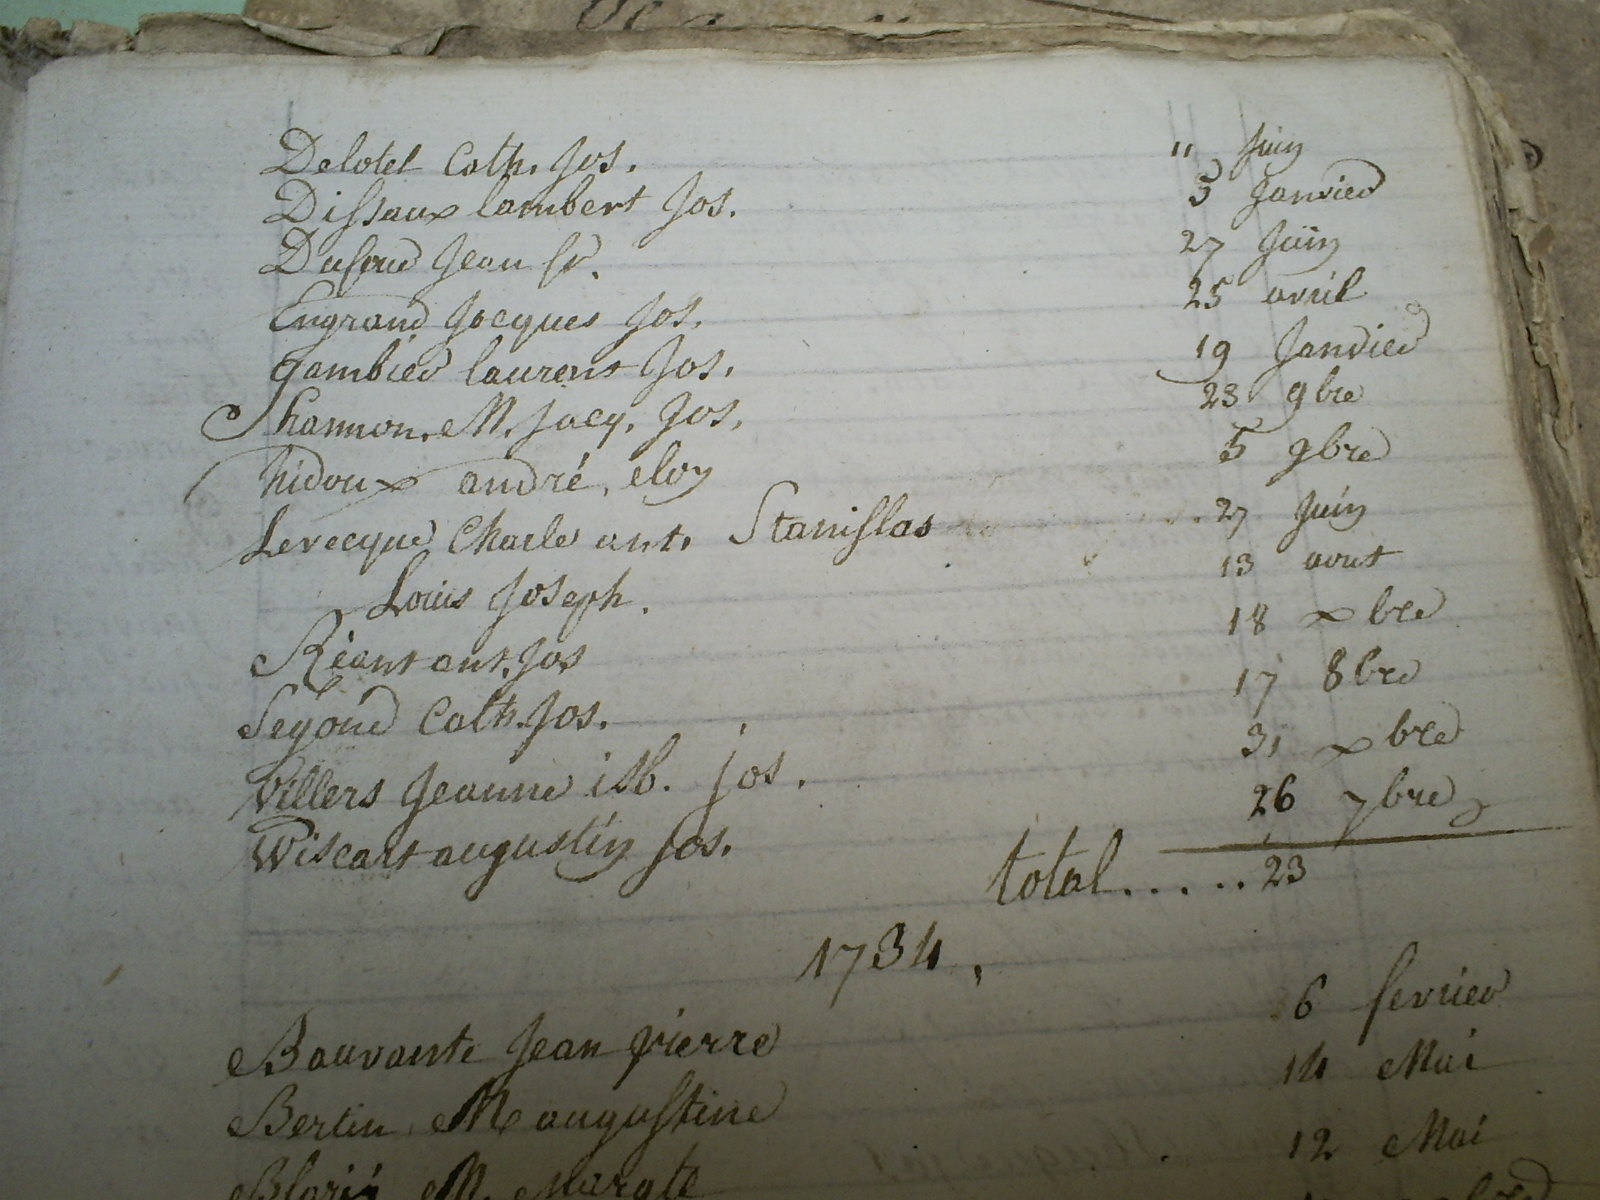 Delotel Cath. Jos. 11 Juin
Dissaux lambert Jos. 5 Janvier
Dufour Jean fr. 27 Juin
Engrand Jacques Jos. 25 avril
Gambier laurent Jos. 19 Janvier
hannon. M. Jacq. Jos. 23 9bre
hidoux andré, eloy 5 9bre
Levecque Charle ant. Stanislas 27 Juin
Louis Joseph. 13 aout
Réant ant. Jos 18 xbre
Segond Cath. Jos. 17 8bre
Villers Jeanne isb. jos. 31 xbre
Wiscart augustin Jos. 26 7bre
total..... 23
1734.
Bauvante Jean pierre 6 fevrier
Bertin M augustine 14 Mai
M. Margte 12 Mai